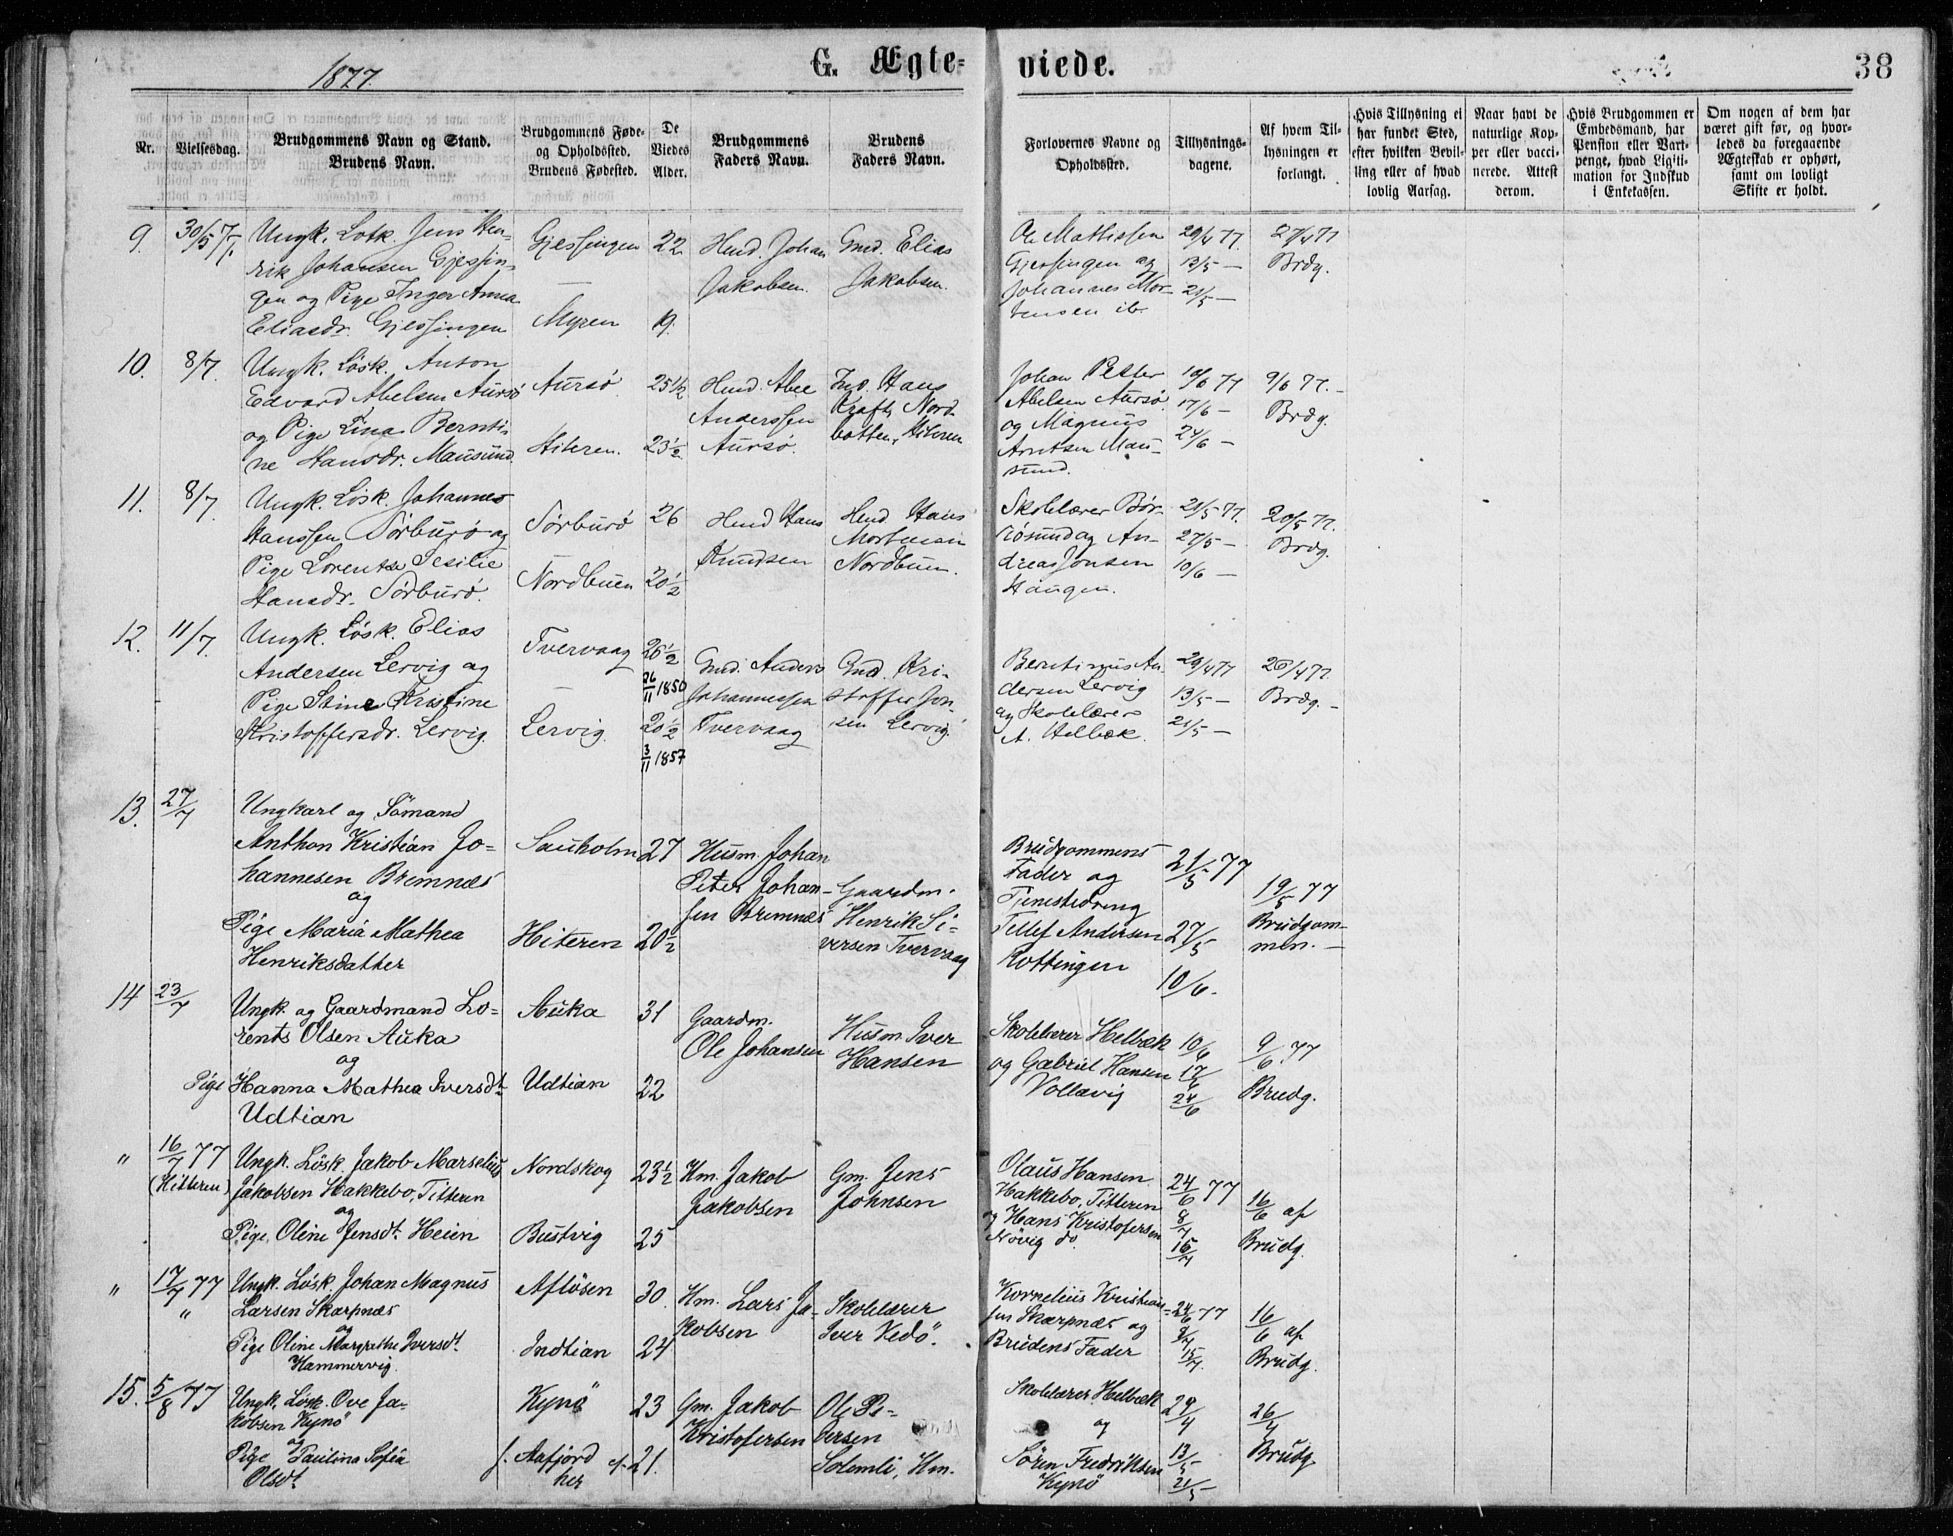 1877.
G. Ægte-
viede.
38
Nr.
Vielsesdag.
Brudgommens Navn og Stand.
Brudens Navn.
Brudgommens Føde-
og Opholdssted.
Brudens Fødested.
De
Viedes
Alder.
Brudgommens
Faders Navn.
Brudens
Faders Navn.
Forlovernes Navne og
Opholdssted.
Tillysnings-
dagene.
Af hvem Til-
lysningen er
forlangt.
Hvis Tillysning ei
har fundet Sted,
efter hvilken Bevil-
ling eller af hvad
lovlig Aarsag.
Naar havt de
naturlige Kop-
per eller vacci-
nerede. Attest
derom.
Hvis Brudgommen er
Embedsmand, har
Pension eller Vart-
penge, hvad Ligiti-
mation for Indskud
i Enkekassen.
Om nogen af dem har
været gift før, og hvor-
ledes da foregaaende
Ægteskab er ophørt,
samt om lovligt
Skifte er holdt.
9.
30/5 77.
Ungk. Losk. Jens Hen-
rik Johansen Gjessin-
gen og Pige Inger Anna
Eliasdr. Gjessingen
Gjessingen
—
Myren
22
19.
Husd. Johan
Jakobsen.
Gmd. Elias
Jakobsen.
Ole Mathissen
Gjessingen og
Johannes Mor-
tensen ib.
29/4 77
13/5 —
21/5 —
27/4 77
Brdg.
10.
8/7.
Ungk. Løsk. Anton
Edvard Abelsen Aursø
og Pige Lina Bernti-
ne Hansdr. Mausund
Aursø
Hiteren.
25 1/2
23 1/2
Husd. Abel
Anderssen
Aursø.
Ind. Hans
Kraft, Nord-
botten, Hiteren
Johan Petter
Abelsen Aursø
og Magnus
Arntsen Mau-
sund.
10/6 77
17/6 —
24/6 —
9/6 77. -
Brdg.
11.
8/7.
Ungk. Løsk. Johannes
Hanssen Sørburø og
Pige Lorentse Sesilie
Hansdr. Sørburø.
Sørburø
Nordbuen
26
20 1/2
Husd Hans
Knudsen
Husd. Hans
Mortensen
Nordbuen.
Skolelærer Bør-
røsund og An-
dreas Jonsen
Haugen.
21/5 77.
27/5 —
10/6 —
20/5 77.
Brdg.
12.
11/7.
Ungk. Løsk. Elias
Andersen Lervig og
Pige Stine Kristine
Kristoffersdr. Lervig.
Tvervaag
—
Lervig
26 1/2
26/11 1850
20 1/2
3/11 1857
Gmd. Anders
Johannessen
Tvervaag
Gmd. Kri-
stoffer Jon-
sen Lervig
Berntinus An-
dersen Lervig
og Skolelærer
A. Helbæk.
29/4 77
13/5 —
21/5 —
26/4 77.
Brdg. -
13.
27/7
Ungkarl og Sömand
Anthon Kristian Jo-
hannesen Bremnes
og
Pige Maria Mathea
Henriksdatter
Sauholm
Hiteren
27
20 1/2
Husm. Johan
Peter Johan-
sen Bremnes
Gaardm.
Henrik Si-
versen Tvervaag
Brudgommens
Fader og
Tjenestedreng
Tellef Andersen
Kottingen
21/5 77
27/5
10/6.
19/5 77
Brudgom-
men. —
14
23/7
Ungk. og Gaardmand Lo-
rents Olsen Auka
og
Pige Hanna Mathea Iversdt.
Udtian
Auka
Udtian
31
22
Gaardm.
Ole Johansen
Husm. Iver
Hansen
Skolelærer Helbæk
og Gabriel Hansen
Vollavig
10/6
17/6
24/6
9/6 77
Brudg.
"
16/7 77
(Hitteren)
Ungk. Løsk. Jakob Marselius
Jakobsen Hakkebo, Titteren
og
Pige Oline Jensdt. Heien
Nordskog
Bustvig
23 1/2
25
Hm. Jakob
Jakobsen
Gm. Jens
Johnsen
Olaus Hansen
Hakkebo, Titteren
og Hans Kristofersen
Nøvig do.
24/6 77
8/7
15/7
16/6 af
Brudg.
"
17/7 77
"
Ungk. Løsk. Johan Magnus
Larsen Skarpnæs
og
Pige Oline Margrethe Iversdt.
Hammervig.
Afløsen
Indtian
30.
24
Hm. Lars Ja-
kobsen
Skolelærer
Iver Vedö.
Kornelius Kristian-
sen Skarpnæs og
Brudens Fader
24/6 77
8/7
15/7.
16/6 af
Brudg.
15.
5/8 77
Ungk. Løsk. Ove Ja-
kobsen Kynö
og
Pige Paulina Sofia
Olsdt
Kynö
f. Aafjord
her
23
21.
Gm. Jakob
Kristofersen
Ole Pe-
dersen
Solemli, Hm.
Skolelærer Helbæk
og
Sören Fredriksen
Kynö
29/4
13/5
21/5
26/4
Brudg.